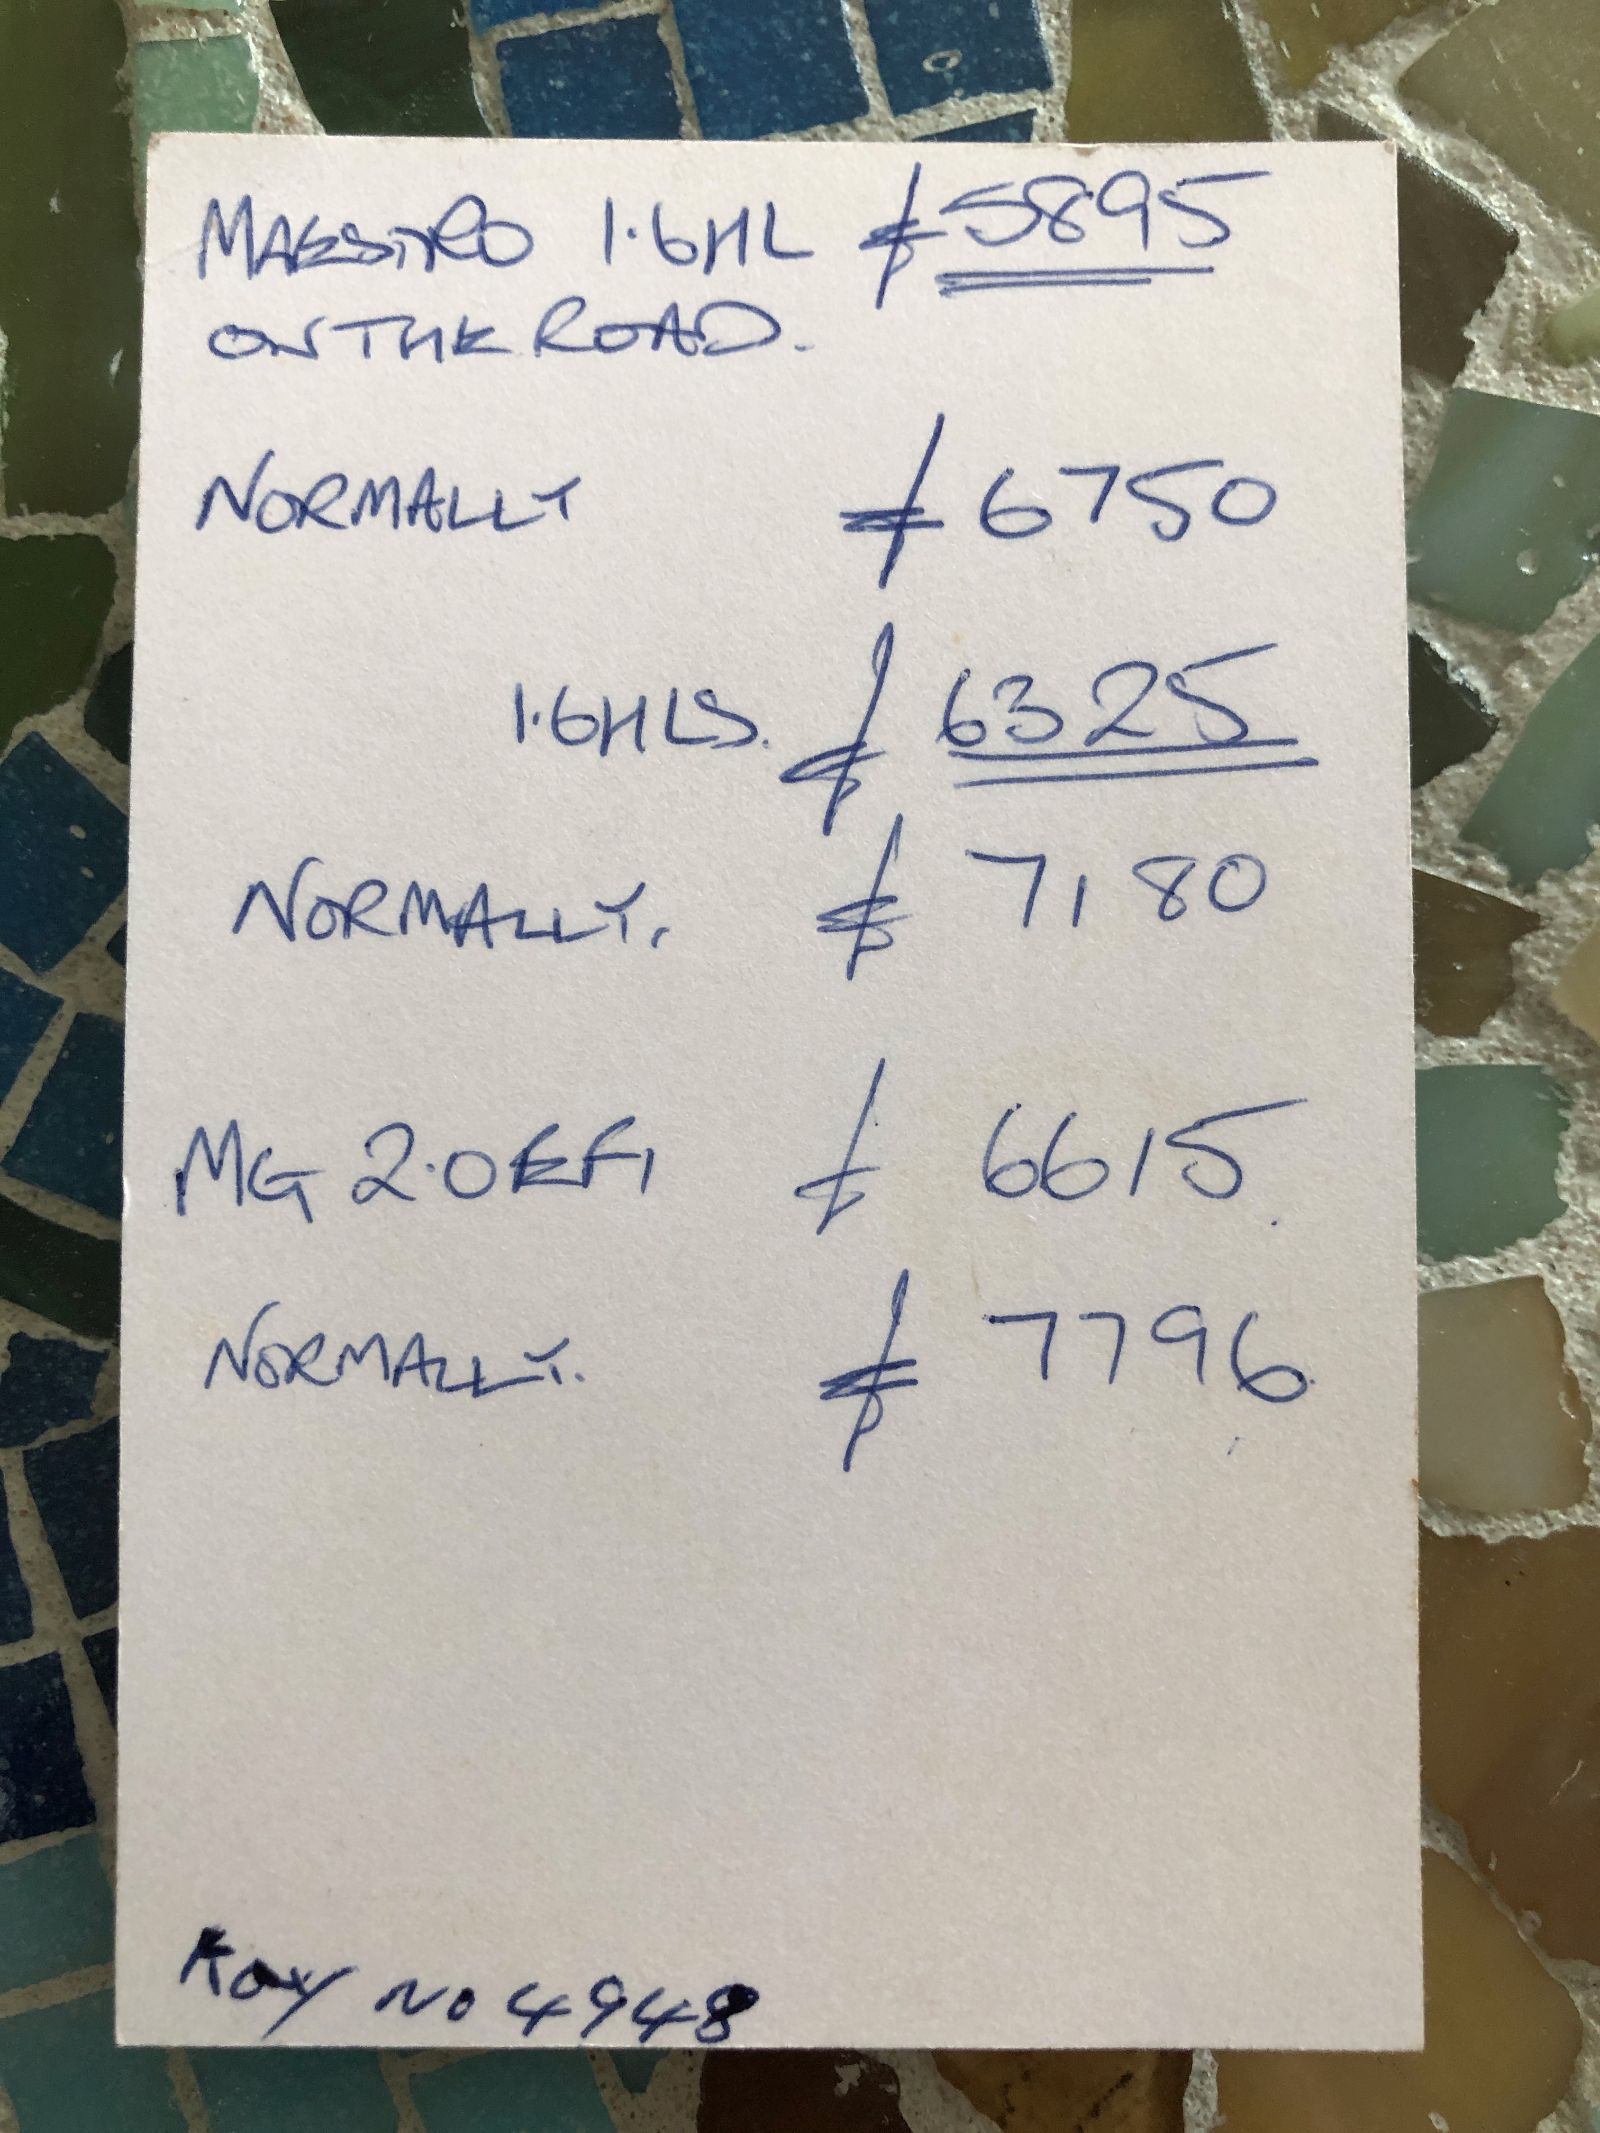 MAESTRO 1.6HL £5895
ON THE ROAD.
NORMALLY £6750
1.6HLS. £6325
NORMALLY. £7,180
MG 2.0 EFI £6615.
NORMALLY. £7796.
KEY NO 4948